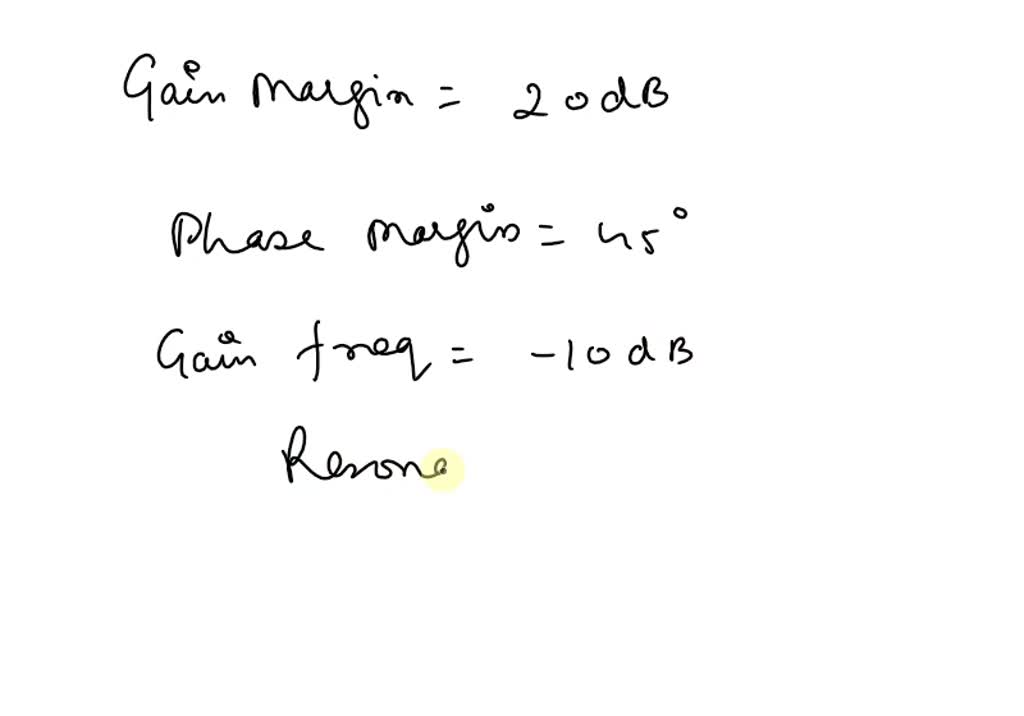 Gain Margin = 20 dB
Phase margin = 45°
Gain freq = -10 dB
Resona